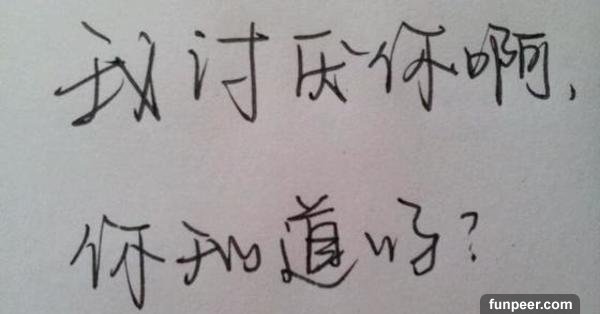 我讨厌你啊，
你知道吗？
funpeer.com